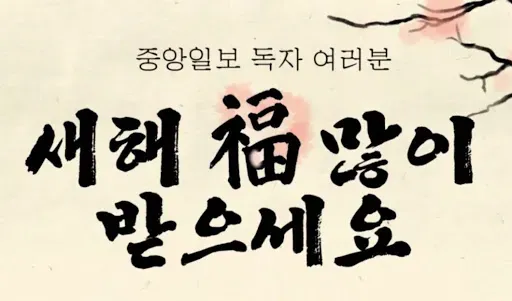 중앙일보 독자 여러분
새해 福 많이
받으세요